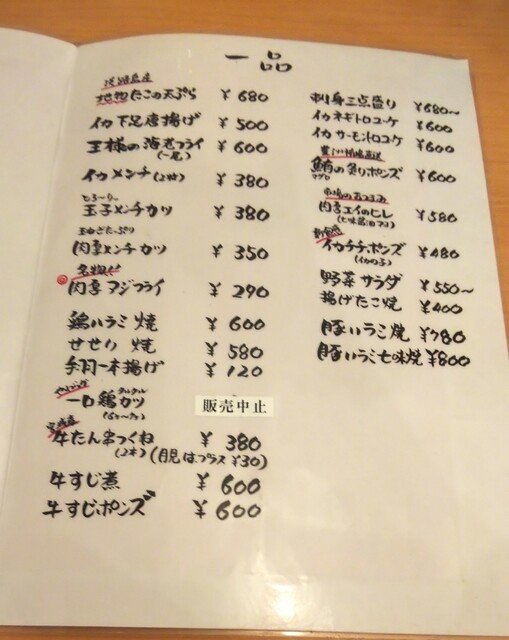 一品
淡路島産
地物たこの天ぷら ¥680
イカ下足唐揚げ ¥500
王様の海老フライ ¥600
(一尾)
イカメンチ(2枚) ¥380
とろ〜り
玉子メンチカツ ¥380
玉ねぎたっぷり
肉厚メンチカツ ¥350
名物
肉厚アジフライ ¥290
鶏ハラミ焼 ¥600
せせり焼 ¥580
手羽一本揚げ ¥120
一口鶏カツ タルタル 販売中止
牛たん串つくね ¥380
(2本)(月見はプラス¥30)
牛すじ煮 ¥600
牛すじポンズ ¥600
刺身三点盛り ¥680〜
イカネギトロユーケ ¥600
イカサーモントロユーケ ¥600
市場直送
鮪の炙りポンズ ¥600
マグロ
肉厚エイのヒレ ¥580
(七味醤油マヨ)
イカチチポンズ ¥480
(イカの子)
野菜サラダ ¥550〜
揚げたこ焼 ¥400
豚ハラミ焼 ¥780
豚ハラミ七味焼 ¥800